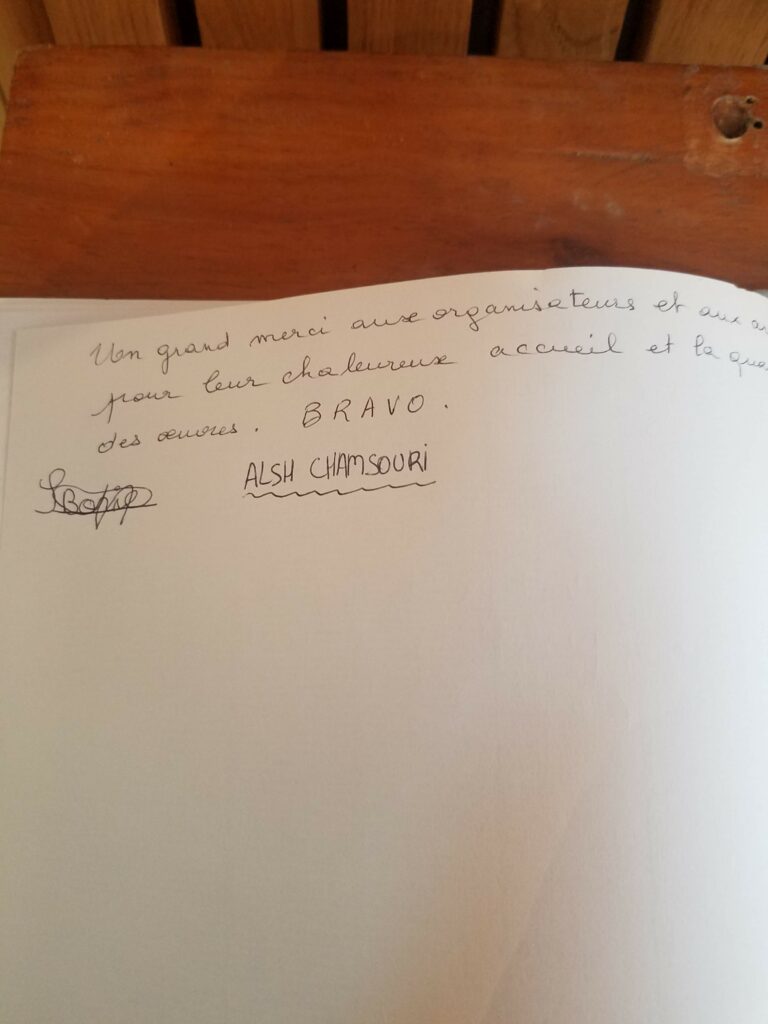 Un grand merci aux organisateurs et aux
pour leur chaleureux accueil et la
des œuvres. BRAVO.
ALSH CHAMSOURI